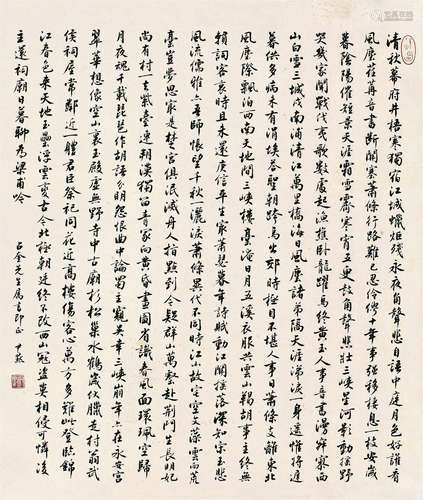 清秋幕府井梧寒獨宿江城蠟炬殘永夜角聲悲自語中庭月色好誰看
風塵荏苒音書斷關塞蕭條行路難已忍伶俜十年事強移棲息一枝安歲
暮陰陽催短景天涯霜雪霽寒宵五更鼓角聲悲壯三峽星河影動搖野
哭幾家聞戰伐夷歌數處起漁樵臥龍躍馬終黃土人事音書漫寂寥西
山白雪三城戍南浦清江萬里橋海內風塵諸弟隔天涯涕淚一身遙惟將遲
暮供多病未有涓埃答聖朝跨馬出郊時極目不堪人事日蕭條支離東北
風塵際飄泊西南天地間三峽樓臺淹日月五溪衣服共雲山羯胡事主終無
賴詞客哀時且未還庾信平生最蕭瑟暮年詩賦動江關搖落深知宋玉悲
風流儒雅亦吾師悵望千秋一灑淚蕭條異代不同時江山故宅空文藻雲雨荒
臺豈夢思最是楚宮俱泯滅舟人指點到今疑群山萬壑赴荊門生長明妃
尚有村一去紫臺連朔漠獨留青冢向黃昏畫圖省識春風面環珮空歸
月夜魂千載琵琶作胡語分明怨恨曲中論蜀主窺吳幸三峽崩年亦在永安宮
翠華想像空山裏玉殿虛無野寺中古廟杉松巢水鶴歲時伏臘走村翁武
侯祠屋常鄰近一體君臣祭祀同花近高樓傷客心萬方多難此登臨錦
江春色來天地玉壘浮雲變古今北極朝廷終不改西山寇盜莫相侵可憐後
主還祠廟日暮聊為梁甫吟
先生屬書即正 尹默